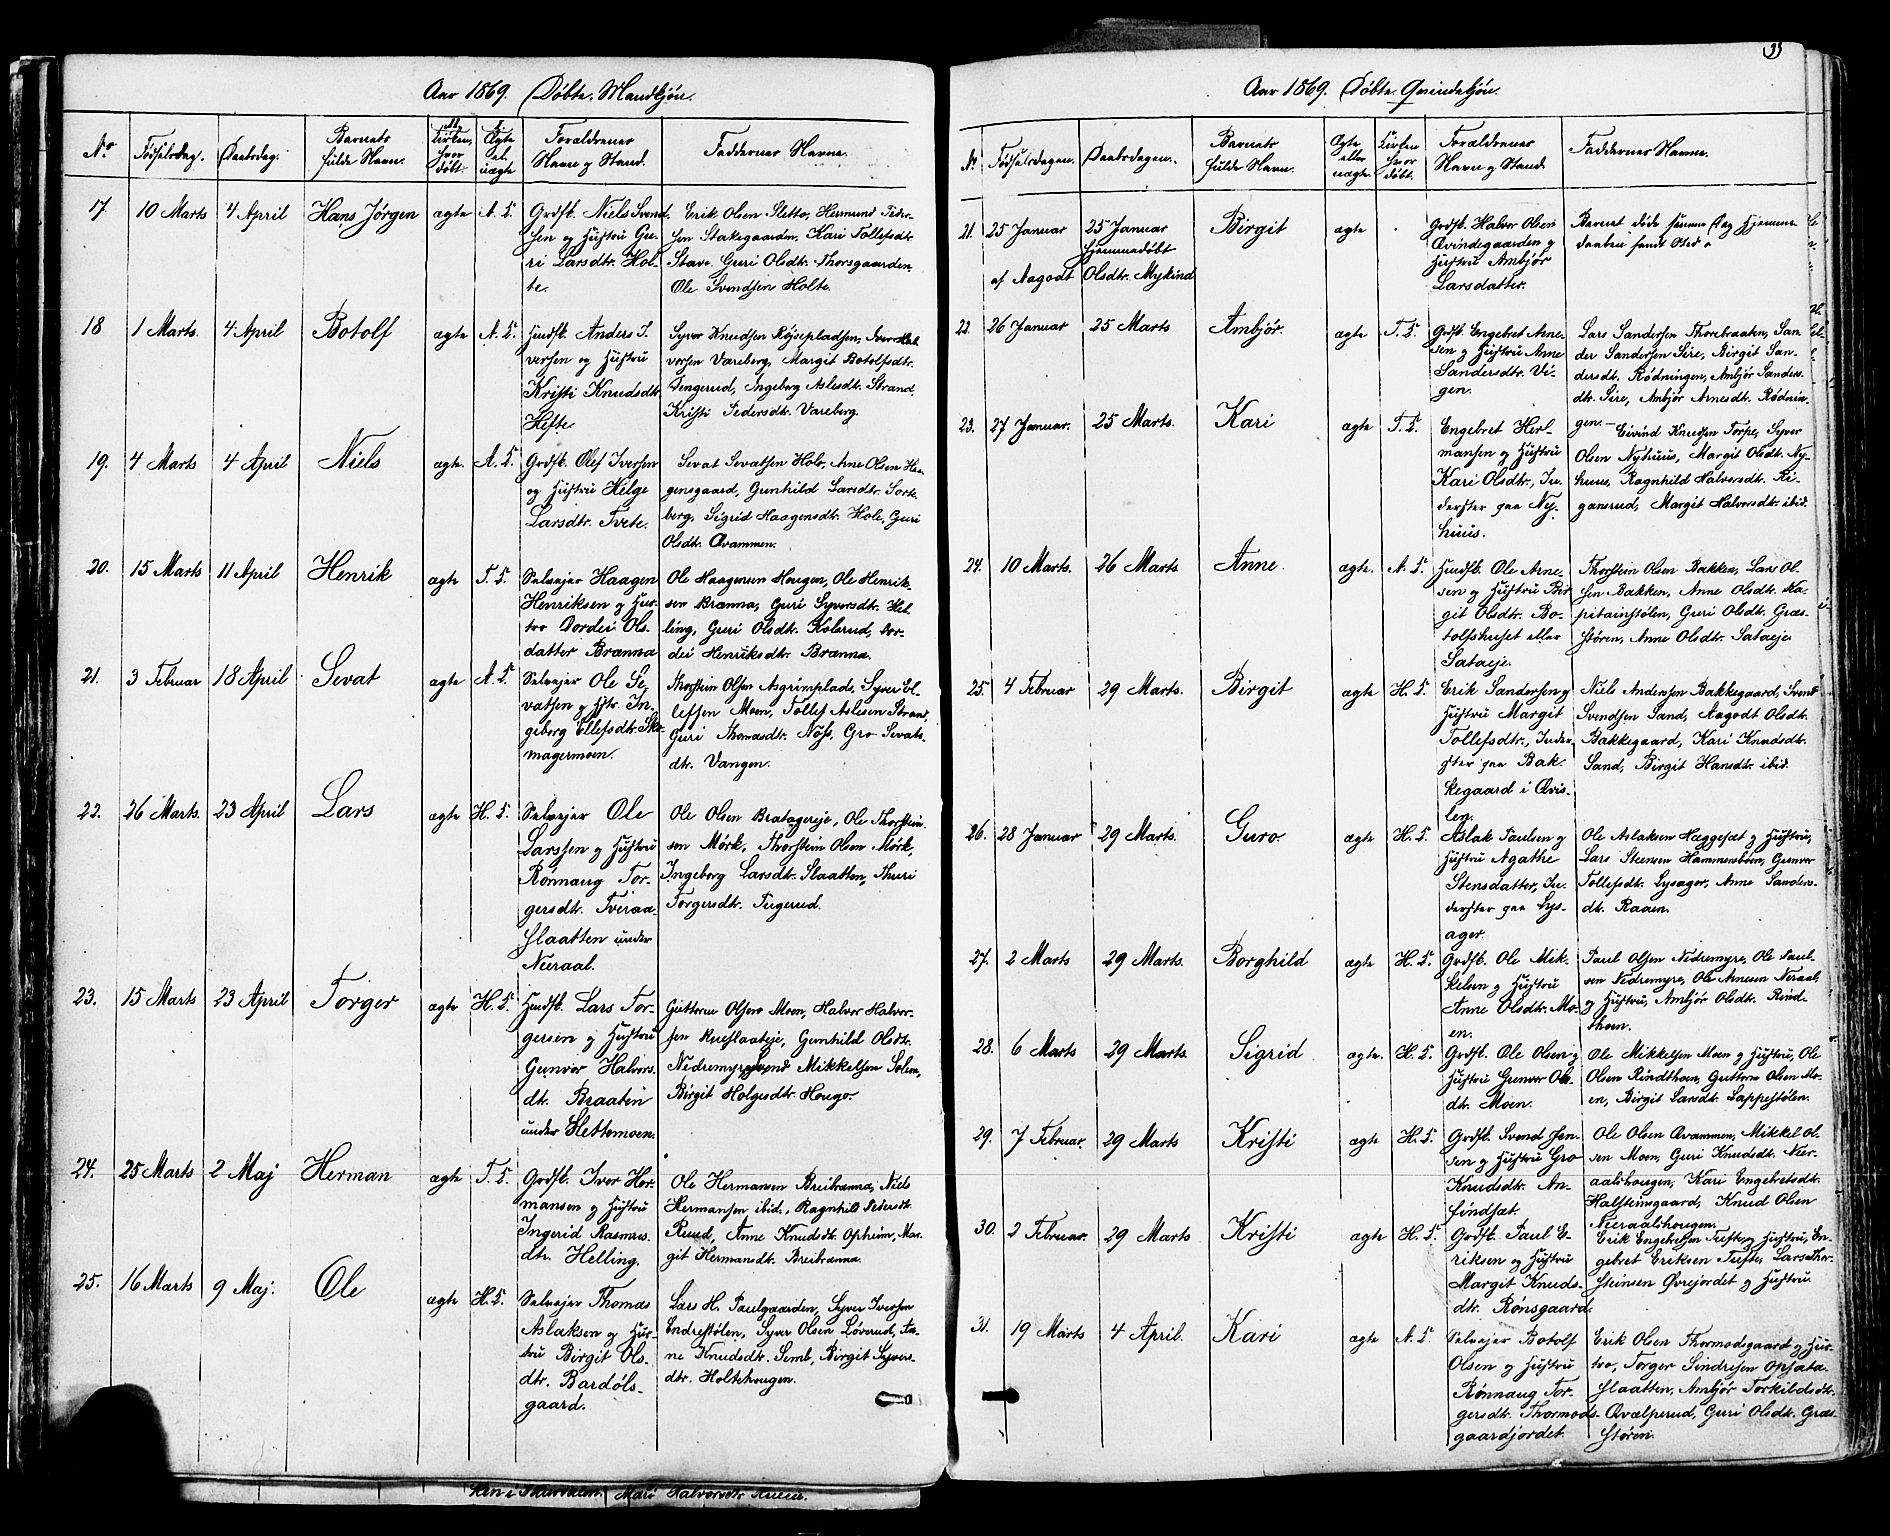 Aar 1869. Døbte. Mandkjøn.
No Fødselsdag. Daabsdag. Barnets fulde Navn. Kirken, hvor døbt. Ægte el. uægte Forældrenes Navn og Stand. Faddernes Navne.
17. 10 Marts 4 April Hans Jørgen ægte A. K.
Grdsb. Niels Svend-
sen og Hustru Gu-
ri Larsdtr. Hol-
te.
Erik Olsen Sletto, Hermund Peder-
sen Stakegaarden, Kari Tollefsdtr.
Stave. Guri Olsdtr. Thorsgaarden,
Ole Svendsen Holte.
18 1 Marts. 4 April Botolf ægte A. K.
Husb. Anders I-
versen og Hustru
Kristi Knudsdtr.
Hefte.
Syver Knudsen Røjsepladsen, Iver
versen Vareberg, Margit Botolfsdtr.
Tengerud, Ingeborg Aslesdtr. Strand,
Kristi Pedersdtr. Vareberg.
19. 4 Marts 4 April Niels ægte. A. K.
Grdsb. Olef Iversen
og Hustru Helge
Larsdtr. Tvete.
Sevat Sevatsen Hole, Arne Olsen Haa-
gensgaard, Gunhild Larsdtr. Sorte-
berg, Sigrid Haagensdtr. Hole, Guri
Olsdtr. Qvammen.
20. 15 Marts 11 April Henrik ægte T. K.
Selvejer Haagen
Henriksen og Hus-
tro Dordei Ols-
datter Brænna
Ole Haagensen Hougen, Ole Henrik-
sen Brænna, Guri Syversdtr. Hel-
ling, Guri Olsdtr. Kolsrud, Dor-
dei Henriksdtr. Brænna.
21. 3 Februar 18 April Sevat ægte A. K.
Selvejer Ole Se-
vatsen og Hstr. In-
geborg Tollefsdtr. Sko-
magermoen.
Thorstein Olsen Asgrimplads, Syver El-
lefsen Moen, Tollef Aslesen Strand,
Guri Thomasdtr. Nøss, Gro Sevats-
dtr. Vangen.
22. 26 Marts. 23 April Lars ægte H. K.
Selvejer Ole
Larssen og Hustru
Rønnaug Tor-
gersdtr. Tveraa-
slaatten under
Neeraal.
Ole Olsen Bratagereje, Ole Thorstein-
sen Mørk, Thorstein Olsen Mørk,
Ingeborg Larsdtr. Slaatten, Thuri
Torgersdtr. Tugerud.
23. 15 Marts 23 April Torger ægte H. K.
Husb. Lars Tor-
gersen og Hustru
Gunvor Halvors-
dtr. Braaten
under Slettemoen.
Guttorm Olsen Moen, Halvor Halvor-
sen Rueslaateje, Gunhild Olsdtr.
Nedremyre, Svend Mikkelsen Solem,
Birgit Holgesdtr. Hougo.
24. 25 Marts 2 Maj Herman ægte T. K.
Grdsb. Iver Her-
mansen og Hustru
Ingerid Rasmus-
dtr. Helling.
Ole Hermansen Breibrænna, Niels
Hermansen ibid., Ragnhild Pedersdtr.
Ruud, Anne Knudsdtr. Opheim, Mar-
git Hermansdtr. Breibrænna.
25. 16 Marts 9 Maj. Ole ægte H. K.
Selvejer Thomas
Aslaksen og Hus-
tru Birgit Ols-
dtr. Bardøls-
gaard.
Lars H. Paulgaarden, Syver Iversen
Endrestølen, Syver Olsen Løverud, An-
ne Knudsdtr. Semb, Birgit Syvers-
dtr. Holtehougen.
ken i Skurdalen. Mari Halvorsdtr.
33
Aar 1869. Døbte. Qvindekjøn.
N. Fødselsdagen. Daabsdagen. Barnets fulde Navn. Ægte eller uægte Kirken hvor døbt. Forældrenes Navn og Stand. Faddernes Navne.
21. 25 Januar 25 Januar Birgit ægte
hjemmedøbt
af Aagodt Olsdtr. Mykind
Grdsb. Halvor Olsen
Qvindegaarden og
Hustru Ambjør
Larsdatter.
Barnet døde samme Dag Hjemme
daaben fandt Sted.
22. 26 Januar 25 Marts Ambjør. ægte T. K.
Grdsb. Engebret Arne-
sen og Hustru Anne
Sandersdtr. Vi-
gen.
Lars Sandersen Thorebraaten, San-
der Sandersen Sire, Birgit San-
dersdt. Rødningen, Ambjør Sanders-
dt. Sire, Ambjør Arnesdt. Rødnin-
gen.
23. 27 Januar. 25 Marts. Kari ægte T. K.
Engebret Herl-
mansen og Hustru
Kari Olsdtr., In-
derster paa Ny-
huus.
Eivind Knudsen Torpe, Syver
Olsen Nyhuus, Margit Olsdt. Ny-
huus, Ragnhild Halvorsdtr. Ri-
gansrud, Margit Halvorsdtr. ibid.
24. 10 Marts. 26 Marts Anne. ægte. A. K.
Husb. Ole Arne-
sen og Hustru Bir-
git Olsdtr. Bo-
tolfshuset eller
Sataeje.
Thorstein Olsen Bakken, Lars Ol-
sen Bakken, Anne Olsdt. Ka-
pitainstølen, Guri Olsdt. Græs-
støren, Anne Olsdtr. Sataeje
25. 4 Februar 29 Marts. Birgit ægte H. K.
Erik Sandersen og
Hustru Margit
Tollefsdtr., Inder-
ster paa Bak-
kegaard i Qvis-
len.
Niels Andersen Bakkegaard, Svend
Svendsen Sand, Aagodt Olsdt.
Bakkegaard, Kari Knudsdtr.
Sand, Birgit Hansdtr. ibid.
26. 28 Januar 29 Marts. Guro. ægte H. K.
Aslak Paulsen og
Hustru Agathe
Stensdatter, In-
derster paa Lys-
ager.
Ole Aslaksen Hæggesæt og Hustru,
Lars Steensen Hammersbøen, Gunvor
Tollefsdt. Lysager, Anne Sanders-
dt. Raaen.
27. 2 Marts 29 Marts. Borghild ægte H. K.
Grdsb. Ole Mik-
kelsen og Hustru
Anne Olsdtr. Mo-
en.
Paul Olsen Nedremyre, Ole Paul-
sen Nedremyre, Ole Arnesen Neraal
og Hustru, Ambjør Olsdt. Rind-
thoen.
28. 6 Marts 29 Marts. Sigrid ægte. H. K.
Grdsb. Ole Olsen og
Hustru Gunvor Ols-
dt. Moen.
Ole Mikkelsen Moen og Hustru, Ole
Olsen Rindthoen, Guttorm Olsen Mo-
en, Birgit Larsdt. Lappestølen.
29. 7 Februar. 29 Marts Kristi ægte H. K.
Grdsb. Svend Jen-
sen og Hustru Gro
Knudsdtr. An-
findset.
Ole Olsen Qvammen, Mikkel Ol-
sen Moen, Guri Knudsdt. Neer-
aalshougen, Kari Engebretsdt.
Halsteinsgaard, Knud Olsen
Neeraalshougen.
30. 2 Februar. 29 Marts Kristi ægte H. K.
Grdsb. Paul E-
riksen og Hustru
Margit Knuds-
dtr. Rønsgaard.
Erik Engebretsen Tufte og Hustru, En-
gebret Eriksen Tufte, Lars Thor-
steinsen Øvrejordet og Hustru.
31. 19 Marts 4 April. Kari ægte A. K.
Selvejer Botolf
Olsen og Hustru
Rønnaug Tor-
gersdtr. Thormods-
gaardjordet.
Erik Olsen Thormodsgaard og Hus-
tro, Torger Sindresen Opsata-
slaatten, Ambjør Torkildsdt.
Qvælperud, Guri Olsdt. Græs-
støren.